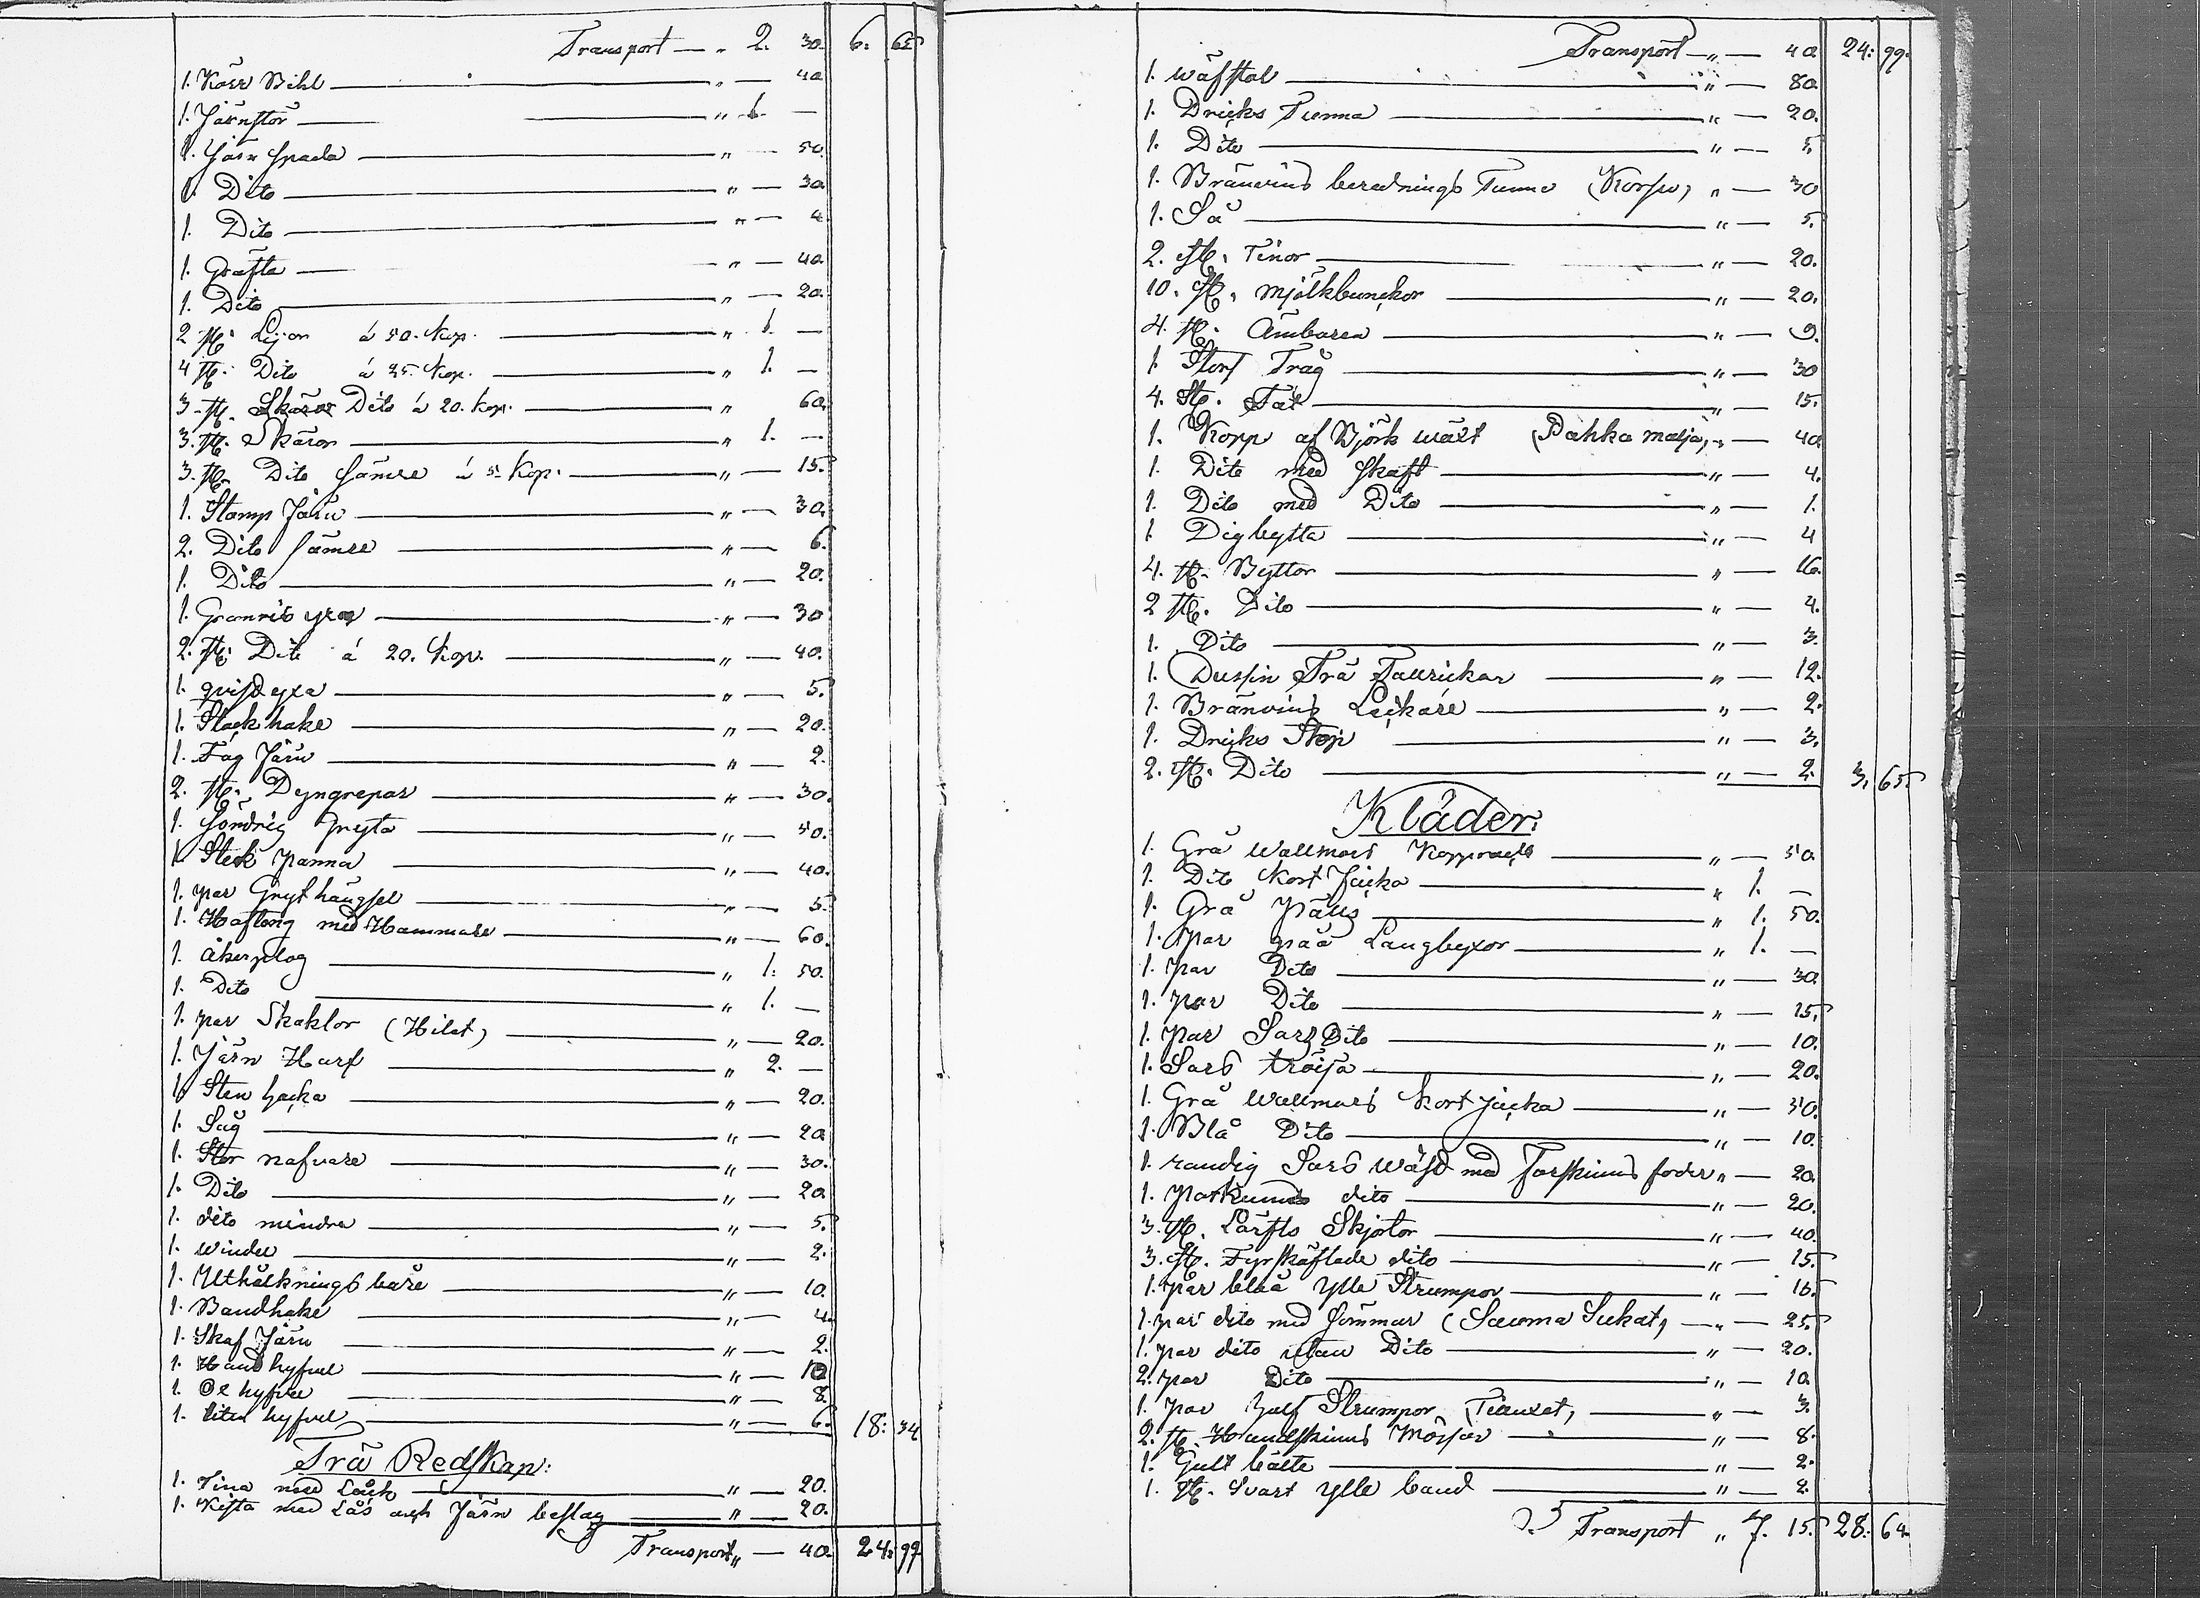 Transport — „ 2. 30. 6. 65
1. Kärr Bihl — „ — 40
1. Järnstör — „ 1. —
1. Järn spada — „ — 50.
1. Dito — „ — 30
1. Dito — „ — 4.
1. Gräfta — „ — 40
1. Dito — „ — 20.
2 st. Lijor á 50. Kop. — „ 1. —
4 st. Dito á 25. Kop. — „ 1. —
3. st. Dito á 20. Kop. — „ 60.
3. st. Skäror — „ 1. —
3. st. Dito sämre á 5. Kop. — „ — 15.
1. Stamp Järn — „ — 30.
2. Dito sämre — „ — 6.
1. Dito — „ — 20.
1. Granris yxa — „ — 30
2. st. Dito á 20. Kop. — „ — 40.
1. qvist yxa — „ — 5.
1. Stack hake — „ — 20.
1. Tag Järn — „ — 2.
2. st. Dyngrepar — „ — 30.
1. söndrig gryta — „ — 50.
1. Stek panna — „ — 40.
1. par Gryt hängsel — „ — 5.
1. Hoftong med Hammare — „ — 60.
1. åkerplog — „ 1. 50.
1. Dito — „ 1. —
1. par Skaklor (Hilat) — „ — 20.
1. Järn Harf — „ 2. —
1. Sten hacka — „ — 20.
1. Såg — „ — 20
1. Stor nafvare — „ — 30.
1. Dito — „ — 20
1. dito mindre — „ — 5.
1. winder — „ — 2.
1. Uthålknings båre — „ — 10.
1. Bandhake — „ — 4.
1. Skaf Järn — „ — 2.
1. Hand hyfvel — „ — 10
1. hyfvel — „ — 8.
1. liten hyfvel — „ — 6. 18. 34
Trä Redskap:
1. Tina med Låck — „ — 20.
1. Kista med Lås och Järn beslag — „ — 20.
Transport „ — 40. 24. 99.
Transport „ — 40 24. 99.
1. wäfstol — „ — 80.
1. Dricks Tunna — „ — 20.
1. Dito — „ — 5.
1. Bränvins berednings Tunna (Korso) „ — 30
1. Så — „ — 5.
2. st. Tinor — „ — 20.
10. st. mjölkbunckor — „ — 20.
4. st. Ämbaren — „ — 9.
1. Stort Tråg — „ — 30
4. St. Fat — „ — 15.
1. Kopp af Björk wäxt (Pahka malja) „ — 40
1. Dito med skaft — „ — 4.
1. Dito med Dito — „ — 1.
1. Digbytta — „ — 4
4. st. Byttor — „ — 16.
2 st. Dito — „ — 4.
1. Dito — „ — 3.
1. Dussin Trä Tallrickar — „ — 12.
1. Bränvins Lackare — „ — 2.
1. Dricks Stop — „ — 3.
2. st. Dito — „ — 2. 3. 65.
Kläder:
1. Grå wallmars Kapprock — „ — 50.
1. Dito Kort Jacka — „ 1. —
1. Grå Päls — „ 1. 50.
1. par gråa Langbyxor — „ 1. —
1. par Dito — „ — 30.
1. par Dito — „ — 15.
1. par Sars Dito — „ — 10.
1. Sars tröija — „ — 20.
1. Grå wallmars Kort jacka — „ — 50.
1. Blå Dito — „ — 10.
1. randig Sars wäst med Farskinns foder „ — 20.
1. dito — „ — 20.
3. st. Lärfts Skjortor — „ — 40.
3. st. Fyrskäftade dito — „ — 15.
1. par blåa ylle Strumpor — „ — 15.
1. par dito med sömmar (Sauma Sukat) — „ — 25.
1. par dito utan Dito — „ — 20.
2. par Dito — „ — 10
1. par half Strumpor — „ — 3.
2. st. Hundskinns Mössor — „ — 8.
1. Gult bälte — „ — 2.
1. st. Svart ylle band — „ — 2.
Transport „ 7. 15. 28. 64.